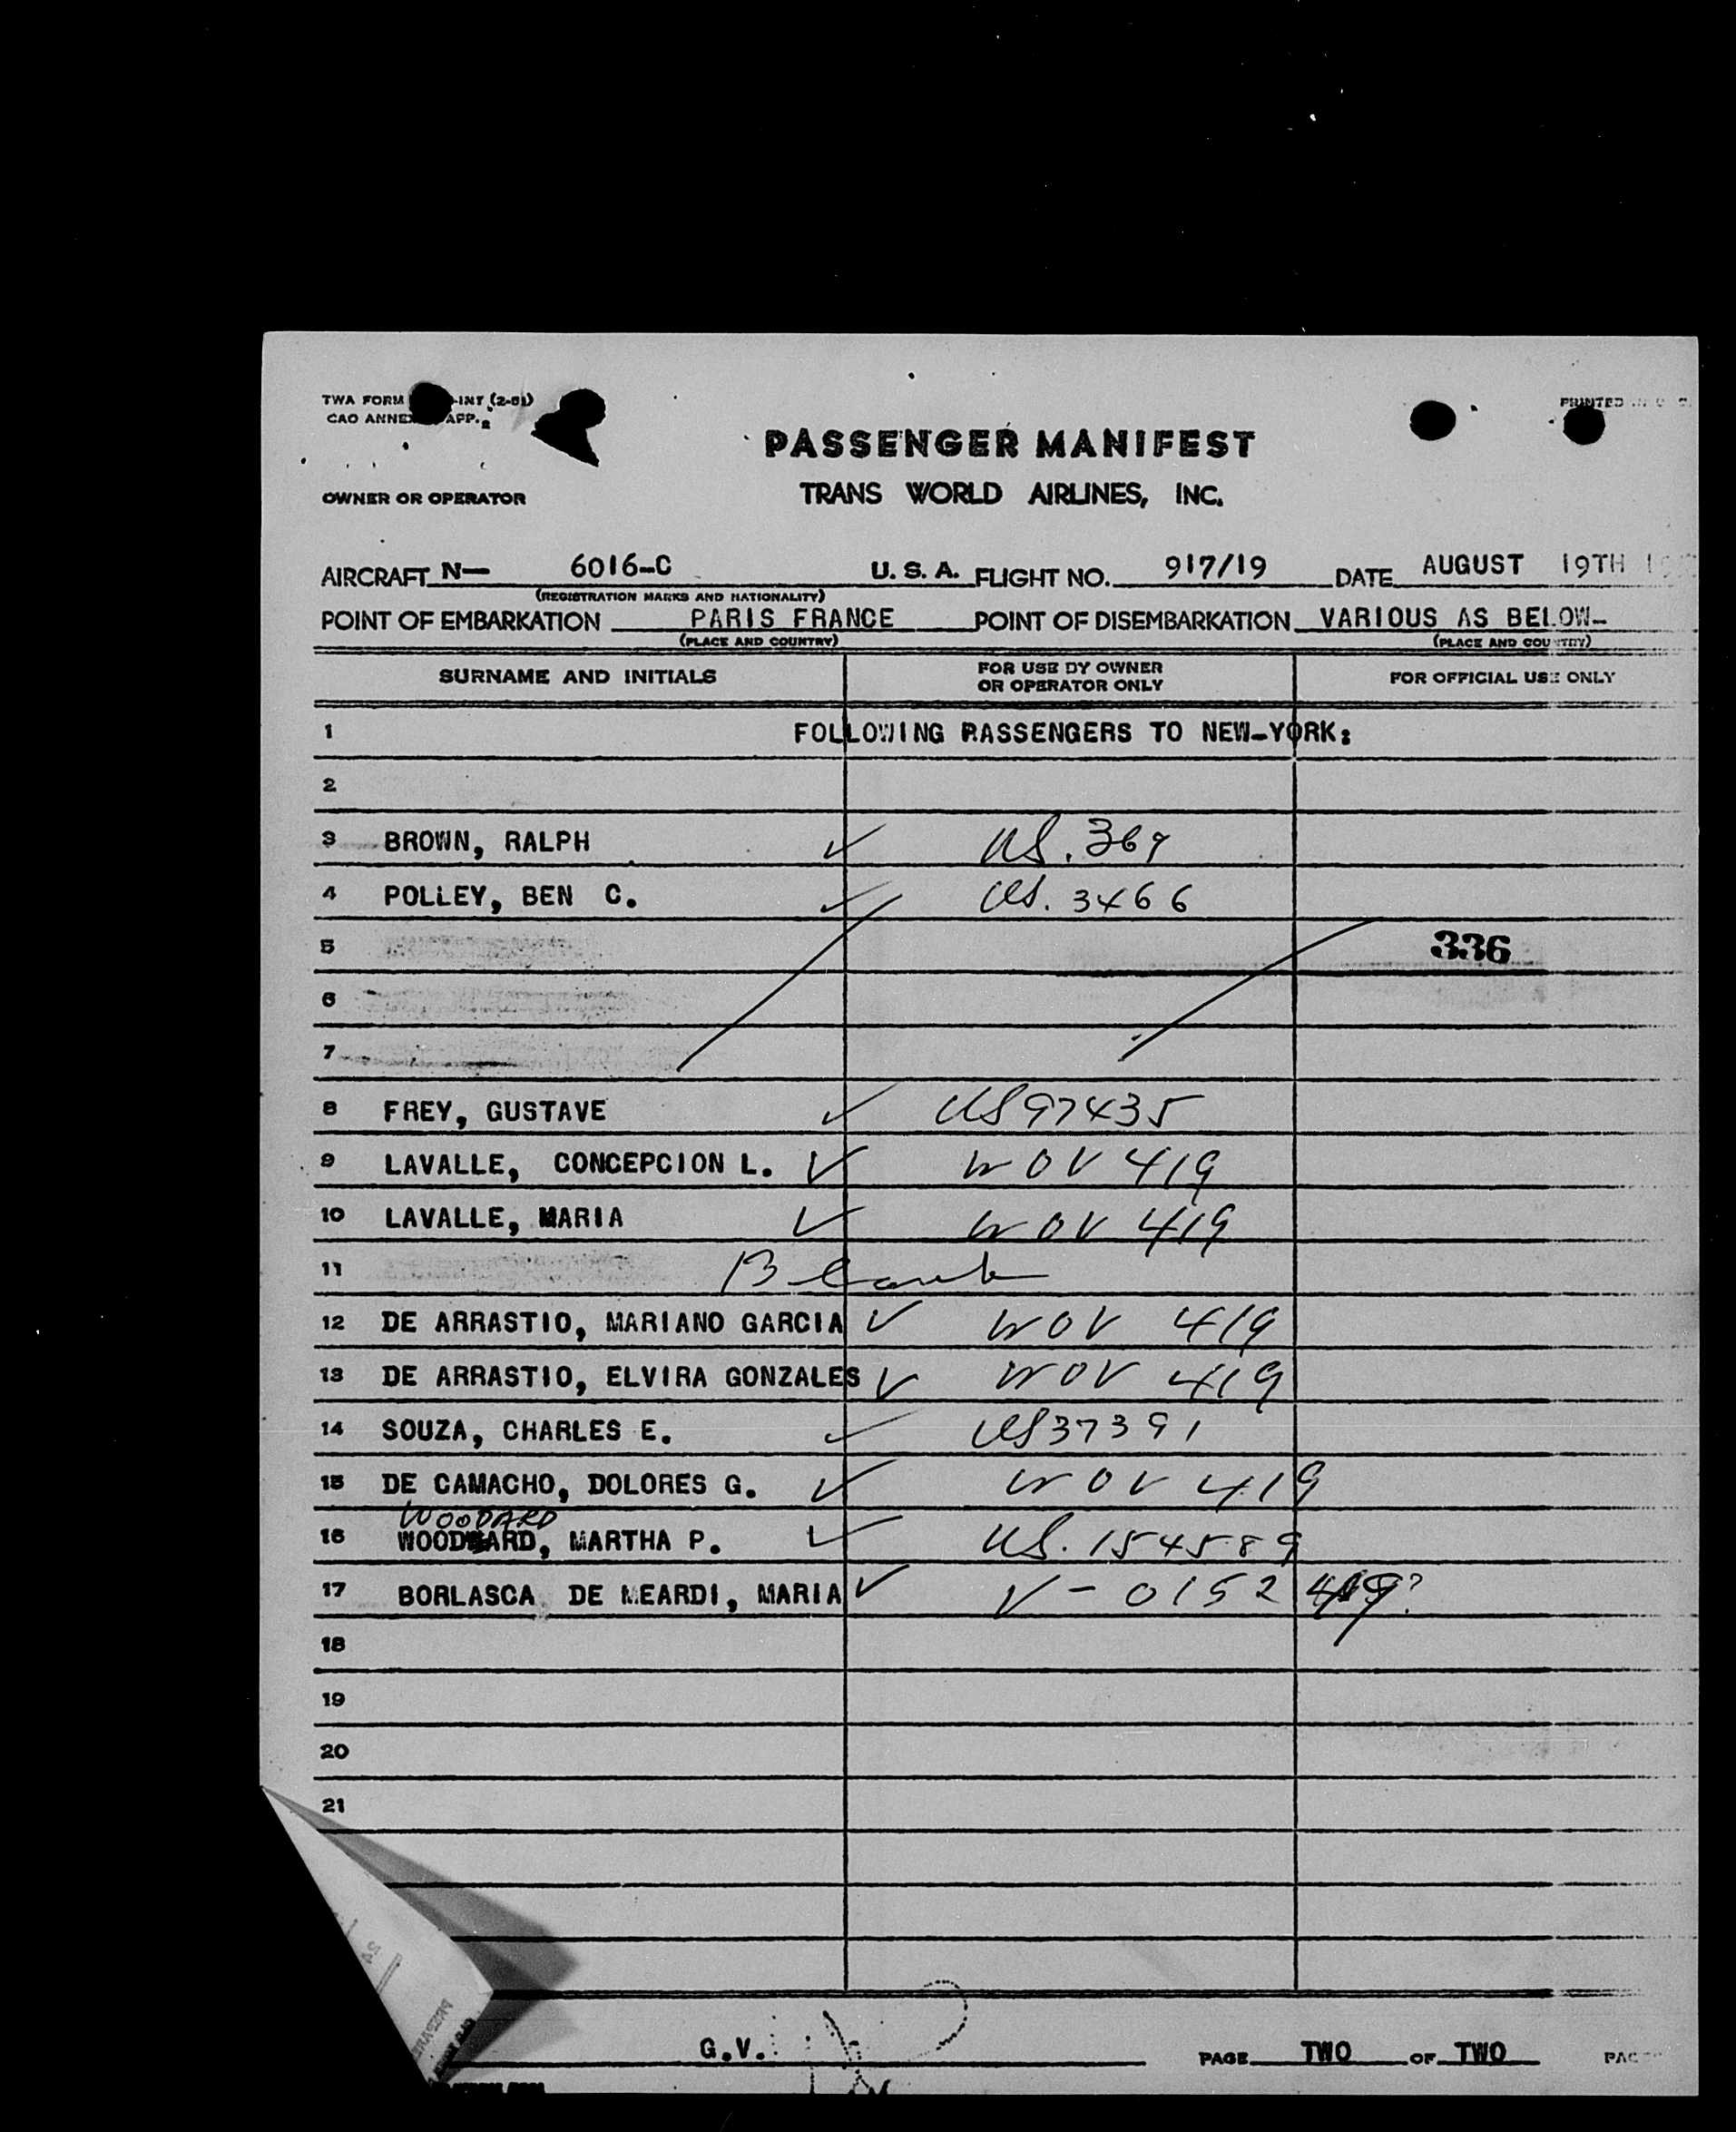 TWA FORM -INT (2-51)
PRINTED
CAO ANNEX APP. 2
PASSENGER MANIFEST
OWNER OR OPERATOR TRANS WORLD AIRLINES, INC.
AIRCRAFT N— 6016-C U. S. A. FLIGHT NO. 917/19 DATE AUGUST 19TH
(REGISTRATION MARKS AND NATIONALITY)
POINT OF EMBARKATION PARIS FRANCE POINT OF DISEMBARKATION VARIOUS AS BELOW-
(PLACE AND COUNTRY) (PLACE AND COUNTRY)
SURNAME AND INITIALS FOR USE BY OWNER OR OPERATOR ONLY FOR OFFICIAL USE ONLY
1 FOLLOWING PASSENGERS TO NEW-YORK:
2
3 BROWN, RALPH ✓ US. 369
4 POLLEY, BEN C. ✓ US. 3466
5 336
6
7
8 FREY, GUSTAVE ✓ US 97435
9 LAVALLE, CONCEPCION L. ✓ WOV 419
10 LAVALLE, MARIA ✓ WOV 419
11 Blank
12 DE ARRASTIO, MARIANO GARCIA ✓ WOV 419
13 DE ARRASTIO, ELVIRA GONZALES ✓ WOV 419
14 SOUZA, CHARLES E. ✓ US 37391
15 DE CAMACHO, DOLORES G. ✓ WOV 419
WOODARD
16 WOODWARD, MARTHA P. ✓ US. 154589
17 BORLASCA DE MEARDI, MARIA ✓ V-0152 419?
18
19
20
21
G.V. PAGE TWO OF TWO